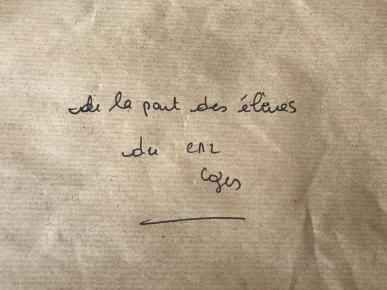 de la part des élèves
du CM2